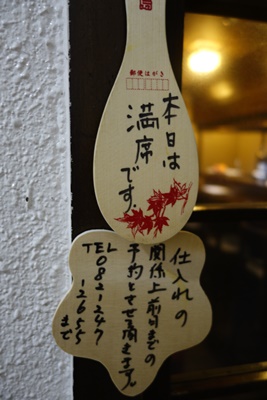 郵便はがき
本日は
満席
です。
仕入れの
関係上前日までの
予約とさせて頂きます。
TEL
082-247
-2655
まで